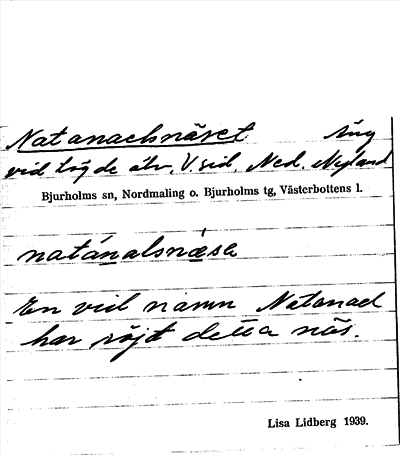 Natanaelsnäset Äng
vid Lögde älv, V. sid. Ned. Nyland
Bjurholms sn, Nordmaling o. Bjurholms tg, Västerbottens l.
natánalsnæ̀sə
En vid namn Natanael
har röjt detta näs.
Lisa Lidberg 1939.